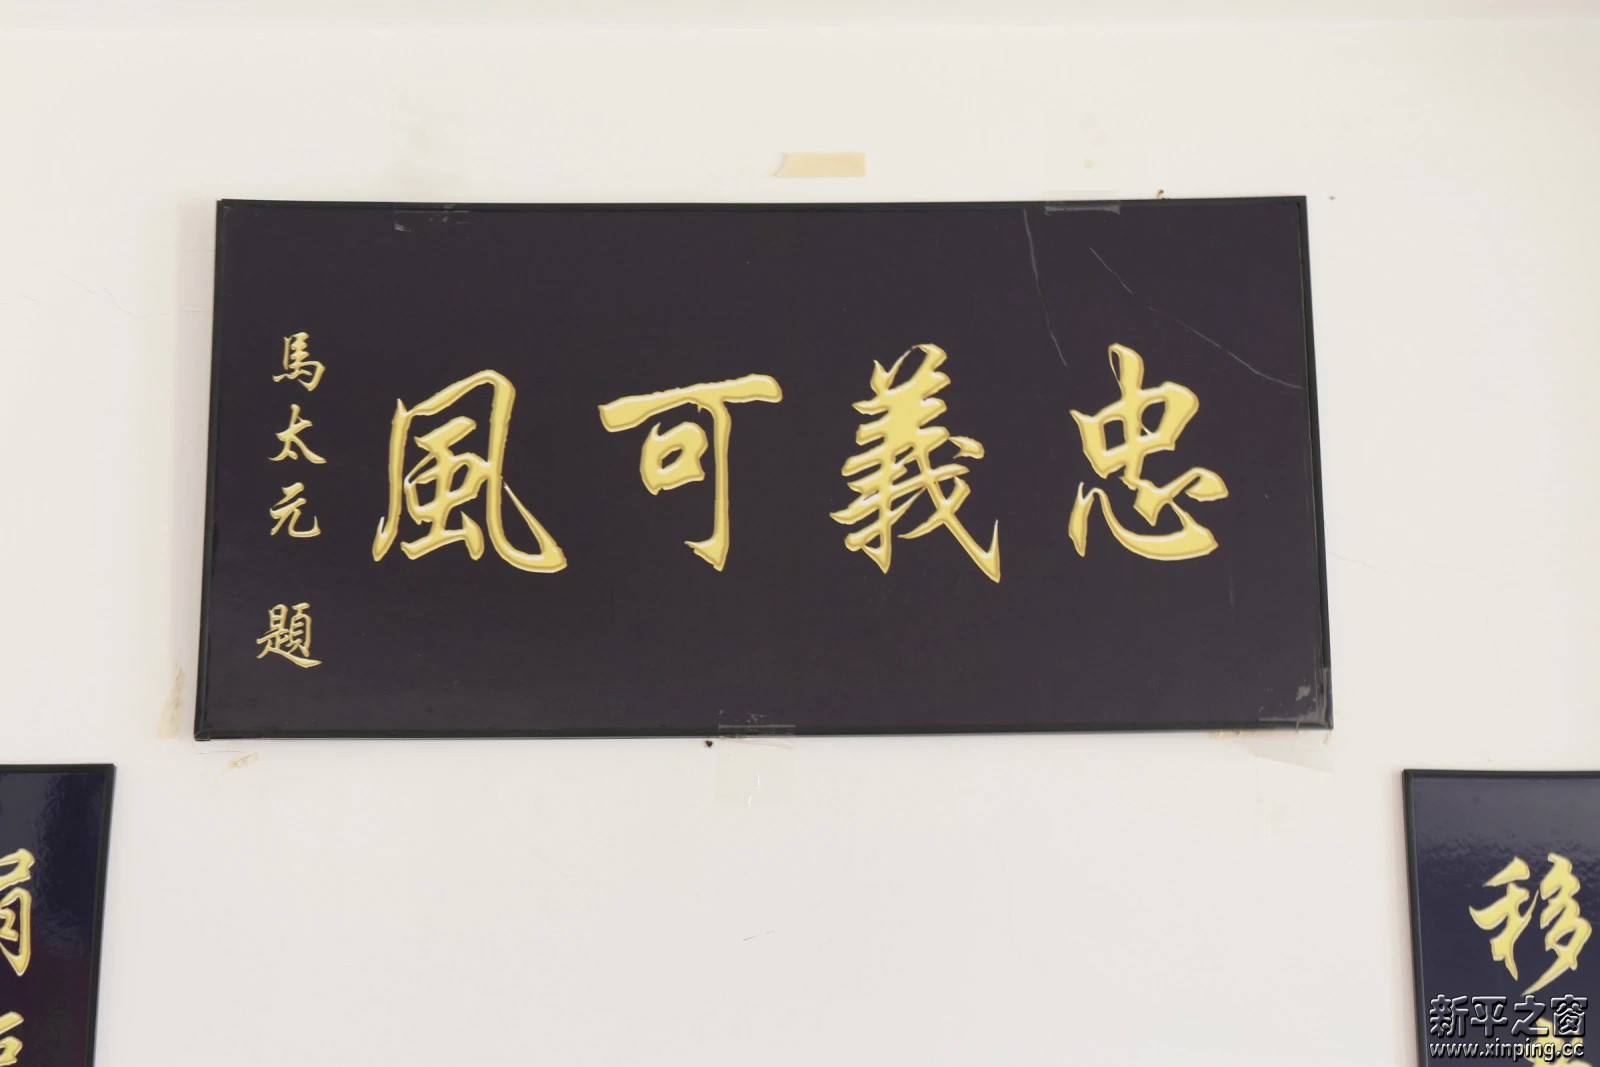 忠義可風
馬太元 題
移
新平之窗
www.xinping.cc